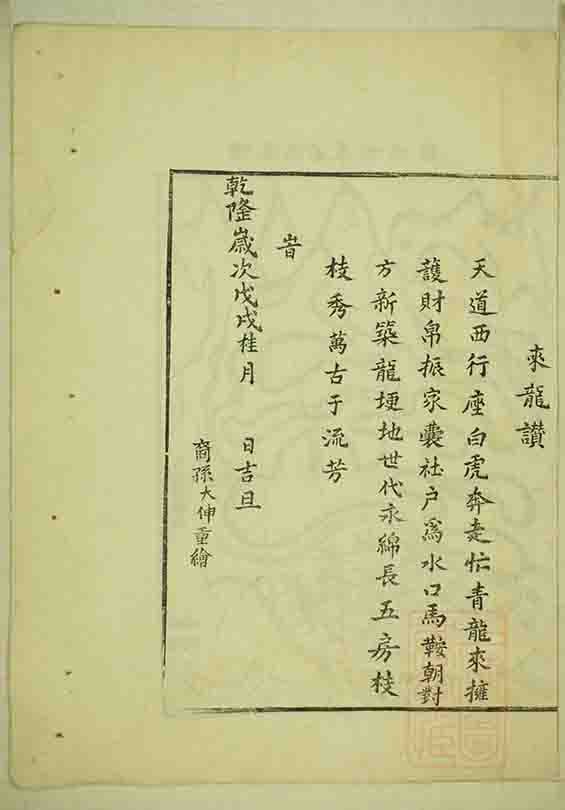 來龍讚
天道西行座白虎奔走忙青龍來擁
護財帛振家囊社户爲水口馬鞍朝對
方新築龍埂地世代永綿長五房枝
枝秀萬古于流芳
旹
乾隆歲次戊戌桂月　日吉旦
裔孫大伸重繪